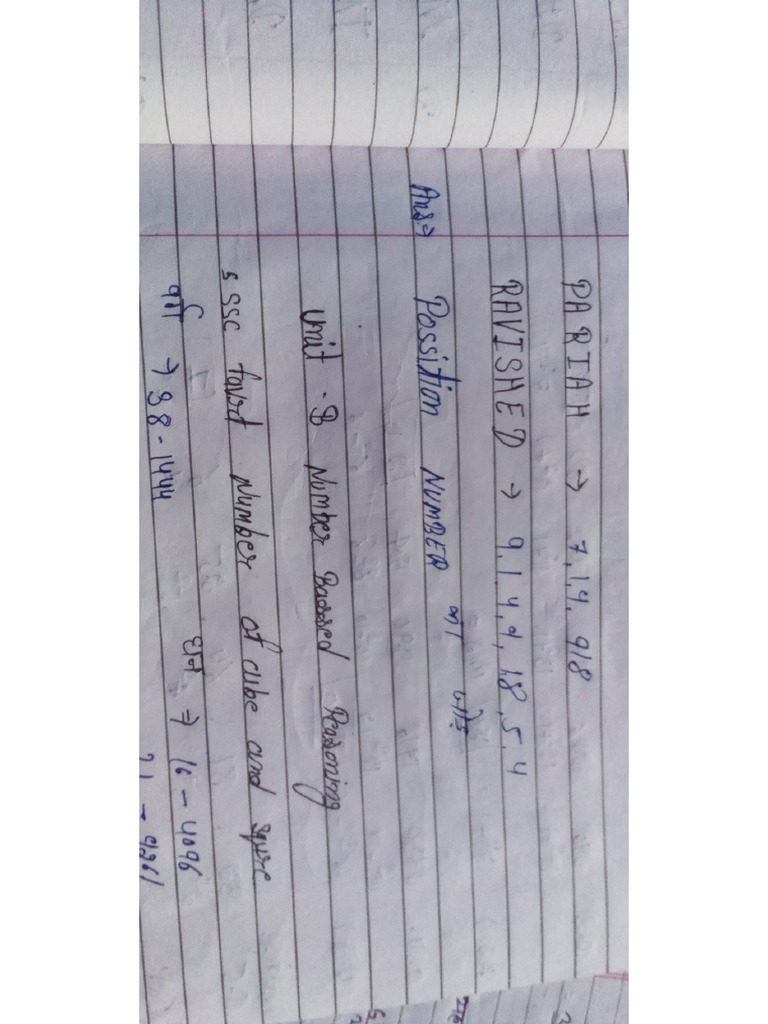 PARIAH → 7, 1, 9, 9, 1, 8
RAVISHED → 9, 1, 4, 9, 1, 8, 5, 4
Ans → Possition NUMBER का
Unit - 3 Number Baesed Reasoning
SSC favrt Number of cube and squre
वर्ग → 38 - 1444 घन → 16 - 4096
21 - 9261